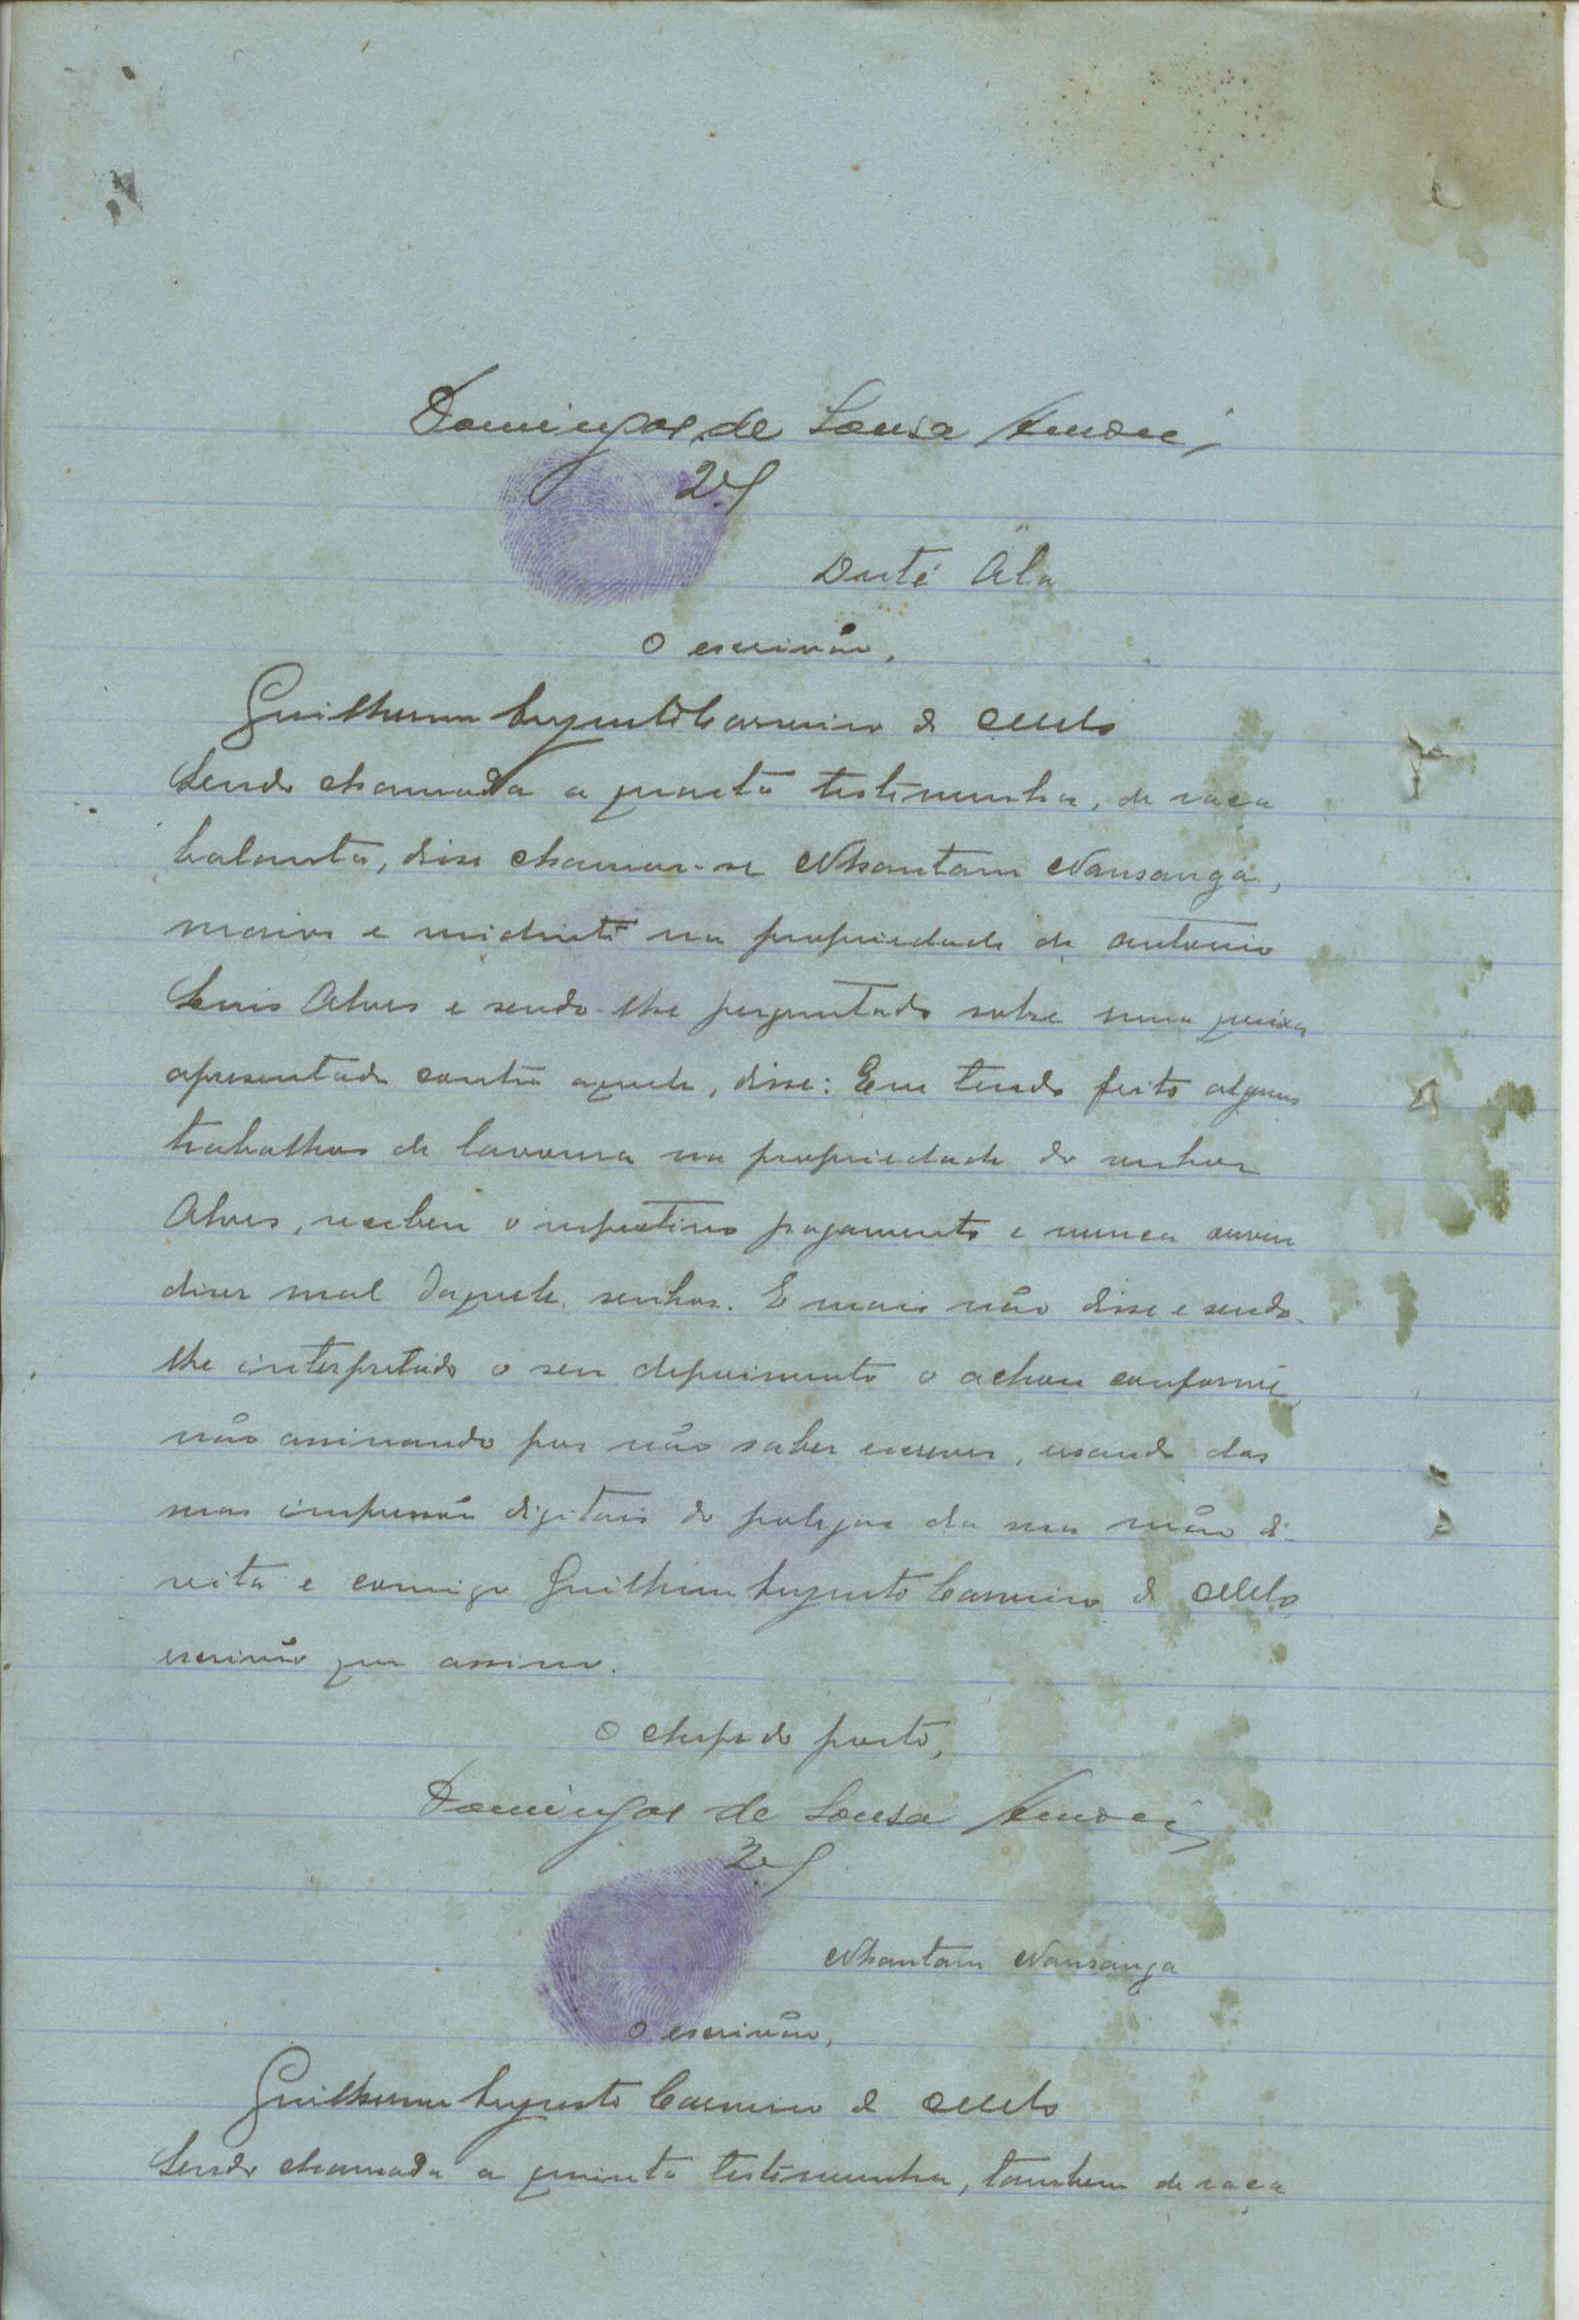 Domingos de Sousa
Duté Ala
O escrivão,
Guilherme Augusto Carneiro de Mello
Sendo chamada a quarta testemunha, de raça
balanta, disse chamar-se Nhantam Nansanga,
maior e residente na propriedade de Antonio
Luis Alves e sendo-lhe perguntado sobre uma queixa
apresentada contra aquele, disse: Que tendo feito alguns
trabalhos de lavoura na propriedade do senhor
Alves, recebeu o respectivo pagamento e nunca ouviu
dizer mal daquele senhor. E mais não disse e sendo-
lhe interpretado o seu depoimento o achou conforme,
não assinando por não saber escrever, usando das
suas impressão digitais do polegar da sua mão di-
reita e comigo Guilherme Augusto Carneiro de Mello
escrivão que assino.
O chefe do posto,
Domingos de Sousa
Nhantam Nansanga
O escrivão,
Guilherme Augusto Carneiro de Mello
Sendo chamada a quinta testemunha, tambem de raça